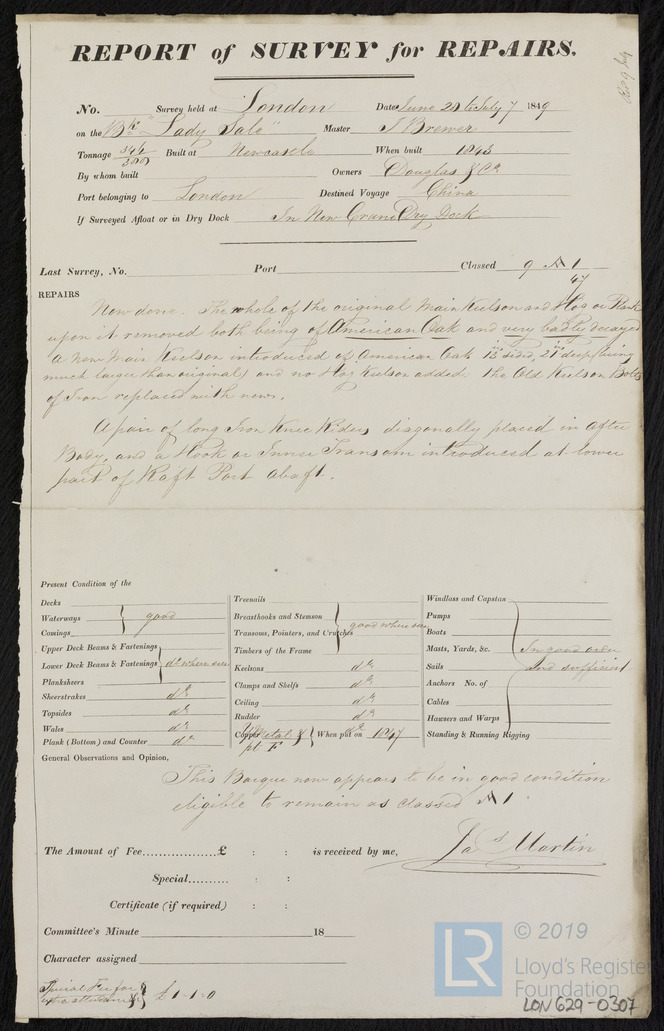 Rec 9 July
REPORT of SURVEY for REPAIRS.
No. Survey held at London Date June 20 to July 7 1849
on the Bk "Lady Sale" Master J Brewer
Tonnage 346/300 Built at Newcastle When built 1843
By whom built Owners Douglas & Co.
Port belonging to London Destined Voyage China
If Surveyed Afloat or in Dry Dock In New Crane Dry Dock
Last Survey, No. Port Classed 9 A 1
47
REPAIRS
Now done. The whole of the original Main Keelson and Hog or Plank
upon it removed both being of American Oak and very badly decayed
a New Main Keelson introduced of American Oak 15 sided, 21 deep (being
much larger than original) and no Hog Keelson added the Old Keelson Bolts
of Iron replaced with new.
A pair of long Iron Knee Riders diagonally placed in after
Body, and a Hook or Inner Transom introduced at lower
part of Raft Port abaft.
Present Condition of the
Decks
Waterways good
Comings
Upper Deck Beams & Fastenings
Lower Deck Beams & Fastenings do where seen
Planksheers
Sheerstrakes do
Topsides do
Wales do
Plank (Bottom) and Counter do
Treenails
Breasthooks and Stemson good where seen
Transoms, Pointers, and Crutches
Timbers of the Frame
Keelsons do
Clamps and Shelfs do
Ceiling do
Rudder do
Copper Y Metal & pt F When put on 1847
Windlass and Capstan
Pumps
Boats
Masts, Yards, &c. In good order
Sails and sufficient
Anchors No. of
Cables
Hawsers and Warps
Standing & Running Rigging
General Observations and Opinion,
This Barque now appears to be in good condition
eligible to remain as classed A 1
The Amount of Fee................£ : : is received by me,
Jas Martin
Special.......... : :
Certificate (if required) : :
Committee's Minute 18
Character assigned
Special Fee for £1-1-0
LR © 2019
Lloyd's Register
Foundation
LON 629-0307